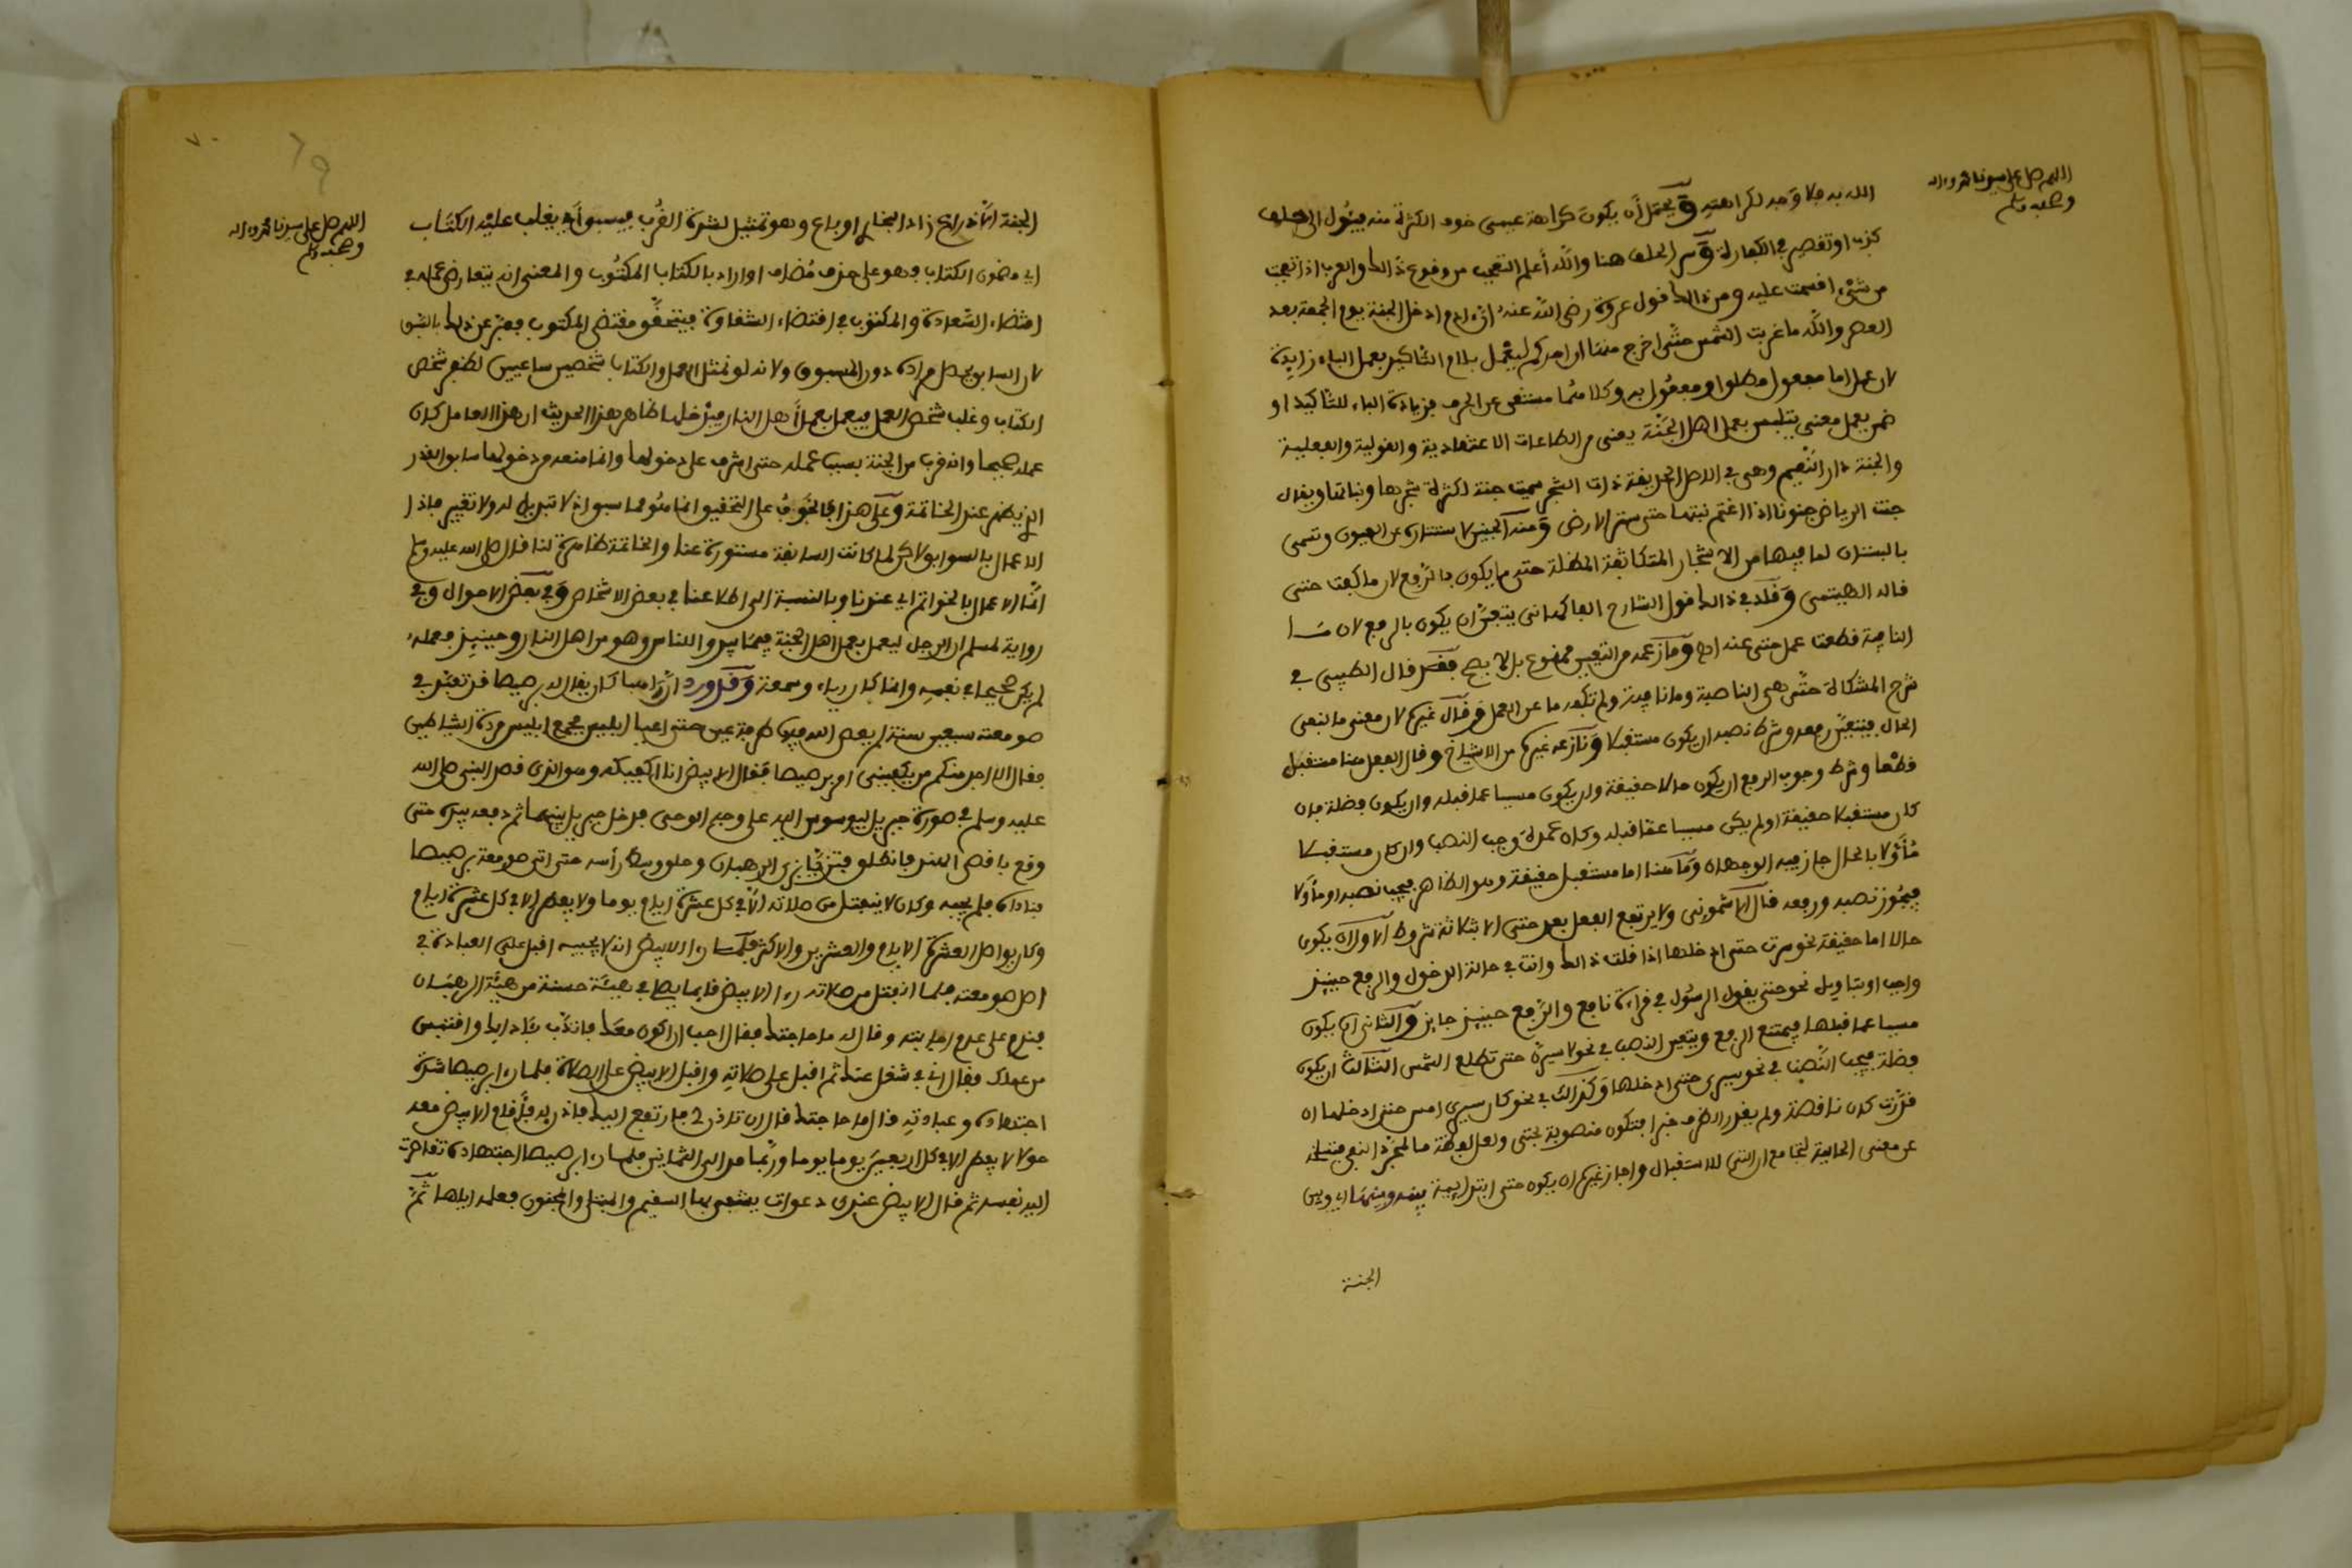 اللهم صل على سيدنا محمد واله
وصحبه وسلم
الله به فلا وجه لكراهته ويحتمل أن يكون كراهة عيسى خوف الكثرة منه فيئول الى الحلف
كذبا او تقصير في الكفارة وسر الحلف هنا والله أعلم التعجب من وقوع ذالك والعرب اذا تعجبت
من شيء اقسمت عليه ومن ذالك قول عروة رضي الله عنه ادخل الجنة يوم الجمعة بعد
العصر والله ما غربت الشمس حتى اخرج منها ان احدكم ليعمل بلام التأكيد بعمل الباء زايدة
لان عمل اما مفعول مطلق او مفعول به وكلاهما مستغن عن الحرف فزيادة الباء للتأكيد او
ضمن يعمل معنى يتلبس بعمل اهل الجنة يعنى من الطاعات الاعتقادية والقولية والفعلية
والجنة دار النعيم وهي في الاصل الحديقة ذات الشجر سميت جنة لكثرة شجرها ونباتها ويقال
جنت الرياض جنونا اذا اعتم نبتها حتى ستر الارض ومنه الجنين لاستتاره عن العيون وتسمى
بالبستان لما فيها من الاشجار المتكاثفة المظلة حتى ما يكون بالرفع لان ما كفت حتى
قاله الهيتمي وقلد في ذالك قول الشارح الفاكهاني يتعين ان يكون بالرفع لان ما
النافية قطعت عمل حتى عنه اه وما زعمه من التعيين ممنوع بل لا يصح فقد قال الطيبي في
شرح المشكاة حتى هي الناصبة وما نافية ولم تكف ما عن العمل وقال غيره لان معنى ما لنفي
الحال فيتعين رفعه وشرط نصبه ان يكون مستقبلا ونازعه غيره من الاشياخ وقال الفعل هنا مستقبل
قطعا وشرط وجوب الرفع ان يكون حالا حقيقة وان يكون مسببا عما قبله وان يكون فضلة فان
كان مستقبلا حقيقة او لم يكن مسببا عما قبله وكان عمدة وجب النصب وان كان مستقبلا
مأولا بالحال جاز فيه الوجهان وما هنا اما مستقبل حقيقة وهو الظاهر فيجب نصبه او مأولا
فيجوز نصبه ورفعه قال الاشموني ولا يرتفع الفعل بعد حتى الا بثلاثة شروط الاول ان يكون
حالا اما حقيقة نحو سرت حتى ادخلها اذا قلت ذالك وانت في حالة الدخول والرفع حينئذ
واجب او بتاويل نحو حتى يقول الرسول في قراءة نافع والرفع حينئذ جايز والثاني ان يكون
مسببا عما قبلها فيمتنع الرفع ويتعين النصب في نحو لاسيرن حتى تطلع الشمس الثالث ان يكون
فضلة فيجب النصب في نحو سيري حتى ادخلها وكذالك في نحو كان سيري امس حتى ادخلها ان
قدرت كان ناقصة ولم يقدر الظرف خبرا فتكون منصوبة بحتى ولعل لفظة ما لمجرد النفي
عن معنى الحالية لتجامع ان التي للاستقبال واجاز غيره ان يكون حتى ابتدايية بينه وبينها اي وبين
الجنة
٧٠
٦٩
اللهم صل على سيدنا محمد واله
وصحبه وسلم
الجنة الا ذراع زاد البخاري او باع وهو تمثيل لشدة القرب فيسبق أي يغلب عليه الكتاب
اي مضمون الكتاب فهو على حذف مضاف او اراد بالكتاب المكتوب والمعنى انه يتعارض عمله في
اقتضاء السعادة والمكتوب في اقتضاء الشقاوة فيتحقق مقتضى المكتوب فعبر عن ذالك بالسبق
لان السابق يحصل مراده دون المسبوق ولانه لو تمثل العمل والكتاب شخصين ساعيين لظفر شخص
الكتاب وغلب شخص العمل فيعمل بعمل أهل النار فيدخلها ظاهر هذا الحديث ان هذا العامل كان
عمله صحيحا وانه قرب من الجنة بسبب عمله حتى اشرف على دخولها وانما منعه من دخولها سابق القدر
الذي يظهر عند الخاتمة وعلى هذا فالخوف على التحقيق انما هو مما سبق اذ لا تبديل له ولا تغيير فاذا
الاعمال بالسوابق لاكن لما كانت السابقة مستورة عنا والخاتمة ظاهرة لنا قال صلى الله عليه وسلم
انما الاعمال بالخواتم اي عندنا وبالنسبة الى اطلاعنا في بعض الاشخاص وفي بعض الاحوال وفي
رواية لمسلم ان الرجل ليعمل بعمل اهل الجنة فيما يبدو للناس وهو من اهل النار وحينئذ فعمله
لم يكن صحيحا في نفسه وانما كان رياء وسمعة وقد ورد ان راهبا كان يقال له برصيصا قد تعبد في
صومعته سبعين سنة لم يعص الله فيها طرفة عين حتى اعيا ابليس فجمع ابليس مردة الشياطين
فقال الا احد منكم من يكفيني امر برصيصا فقال الابيض انا اكفيكه وهو الذي قصد النبي صلى الله
عليه وسلم في صورة جبريل ليوسوس اليه على وجه الوحي فدخل جبريل بينهما ثم دفعه بيده حتى
وقع باقصى الهند فانطلق فتزيا بزي الرهبان وحلق وسط رأسه حتى اتى صومعة برصيصا
فناداه فلم يجبه وكان لا ينفتل من صلاته الا في كل عشرة ايام يوما ولا يفطر الا في كل عشرة ايام
وكان يواصل العشرة الايام والعشرين والاكثر فلما راى الابيض انه لا يجيبه اقبل على العبادة في
اصل صومعته فلما انفتل من صلاته راى الابيض قايما يصلي في هيئة حسنة من هيئة الرهبان
فندم على عدم اجابته وقال له ما حاجتك فقال احب ان اكون معك فاتأدب بآدابك واقتبس
من عملك فقال اني في شغل عنك ثم اقبل على صلاته واقبل الابيض على الصلاة فلما راى برصيصا شدة
اجتهاده وعبادته قال ما حاجتك قال ان تاذن لي فارتفع اليك فاذن له فأقام الابيض معه
حولا لا يفطر الا في كل اربعين يوما يوما وربما مد الى الثمانين فلما راى برصيصا اجتهاده تقاصرت
اليه نفسه ثم قال الابيض عندي دعوات يشفى بها السقيم والمبتلى والمجنون فعلمه اياها ثم